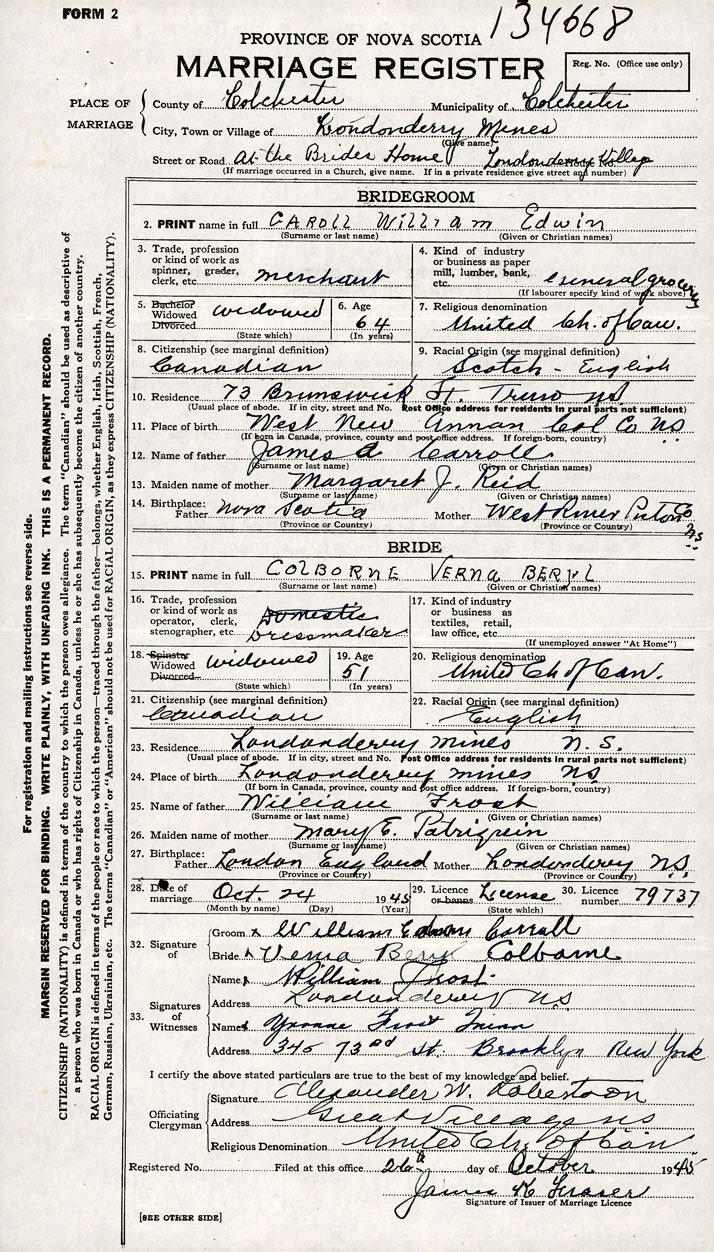 FORM 2
134668
PROVINCE OF NOVA SCOTIA
MARRIAGE REGISTER
Reg. No. (Office use only)
PLACE OF MARRIAGE
County of Colchester Municipality of Colchester
City, Town or Village of Londonderry Mines
(Give name)
Street or Road At the Brides Home Londonderry Village
(If marriage occurred in a Church, give name. If in a private residence give street and number)
BRIDEGROOM
2. PRINT name in full CAROLL William Edwin
(Surname or last name) (Given or Christian names)
3. Trade, profession or kind of work as spinner, grader, clerk, etc. merchant
4. Kind of industry or business as paper mill, lumber, bank, etc. General grocery
(If labourer specify kind of work above)
5. Bachelor Widowed Divorced widowed
(State which)
6. Age 64
(In years)
7. Religious denomination United Ch. of Can.
8. Citizenship (see marginal definition) Canadian
9. Racial Origin (see marginal definition) Scotch - English
10. Residence 73 Brunswick St. Truro N.S.
(Usual place of abode. If in city, street and No. Post Office address for residents in rural parts not sufficient)
11. Place of birth West New Annan Col Co N.S.
(If born in Canada, province, county and post office address. If foreign-born, country)
12. Name of father James A Carroll
(Surname or last name) (Given or Christian names)
13. Maiden name of mother Margaret J. Reid
(Surname or last name) (Given or Christian names)
14. Birthplace: Father Nova Scotia Mother West River Pictou Co N.S.
(Province or Country) (Province or Country)
BRIDE
15. PRINT name in full COLBORNE VERNA BERYL
(Surname or last name) (Given or Christian names)
16. Trade, profession or kind of work as operator, clerk, stenographer, etc. Domestic Dressmaker
17. Kind of industry or business as textiles, retail, law office, etc.
(If unemployed answer "At Home")
18. Spinster Widowed Divorced widowed
(State which)
19. Age 51
(In years)
20. Religious denomination United Ch of Can.
21. Citizenship (see marginal definition) Canadian
22. Racial Origin (see marginal definition) English
23. Residence Londonderry mines N.S.
(Usual place of abode. If in city, street and No. Post Office address for residents in rural parts not sufficient)
24. Place of birth Londonderry mines N.S.
(If born in Canada, province, county and post office address. If foreign-born, country)
25. Name of father William Frost
(Surname or last name) (Given or Christian names)
26. Maiden name of mother Mary E. Patriquin
(Surname or last name) (Given or Christian names)
27. Birthplace: Father London England Mother Londonderry N.S.
(Province or Country) (Province or Country)
28. Date of marriage Oct. 24 1945
(Month by name) (Day) (Year)
29. Licence or banns License
(State which)
30. Licence number 79737
32. Signature of
Groom x William Edwin Carroll
Bride x Verna Beryl Colborne
33. Signatures of Witnesses
Name William Frost
Address Londonderry N.S.
Name Yvonne Frost
Address 345 73rd St. Brooklyn New York
I certify the above stated particulars are true to the best of my knowledge and belief.
Officiating Clergyman
Signature Alexander W. Robertson
Address Great Village N.S.
Religious Denomination United Ch. of Can
Registered No. Filed at this office 26th day of October 1945
James K Fraser
Signature of Issuer of Marriage Licence
[SEE OTHER SIDE]
For registration and mailing instructions see reverse side.
MARGIN RESERVED FOR BINDING. WRITE PLAINLY, WITH UNFADING INK. THIS IS A PERMANENT RECORD.
CITIZENSHIP (NATIONALITY) is defined in terms of the country to which the person owes allegiance. The term "Canadian" should be used as descriptive of
a person who was born in Canada or who has rights of Citizenship in Canada, unless he or she has subsequently become the citizen of another country.
RACIAL ORIGIN is defined in terms of the people or race to which the person—traced through the father—belongs, whether English, Irish, Scottish, French,
German, Russian, Ukrainian, etc. The terms "Canadian" or "American" should not be used for RACIAL ORIGIN, as they express CITIZENSHIP (NATIONALITY).